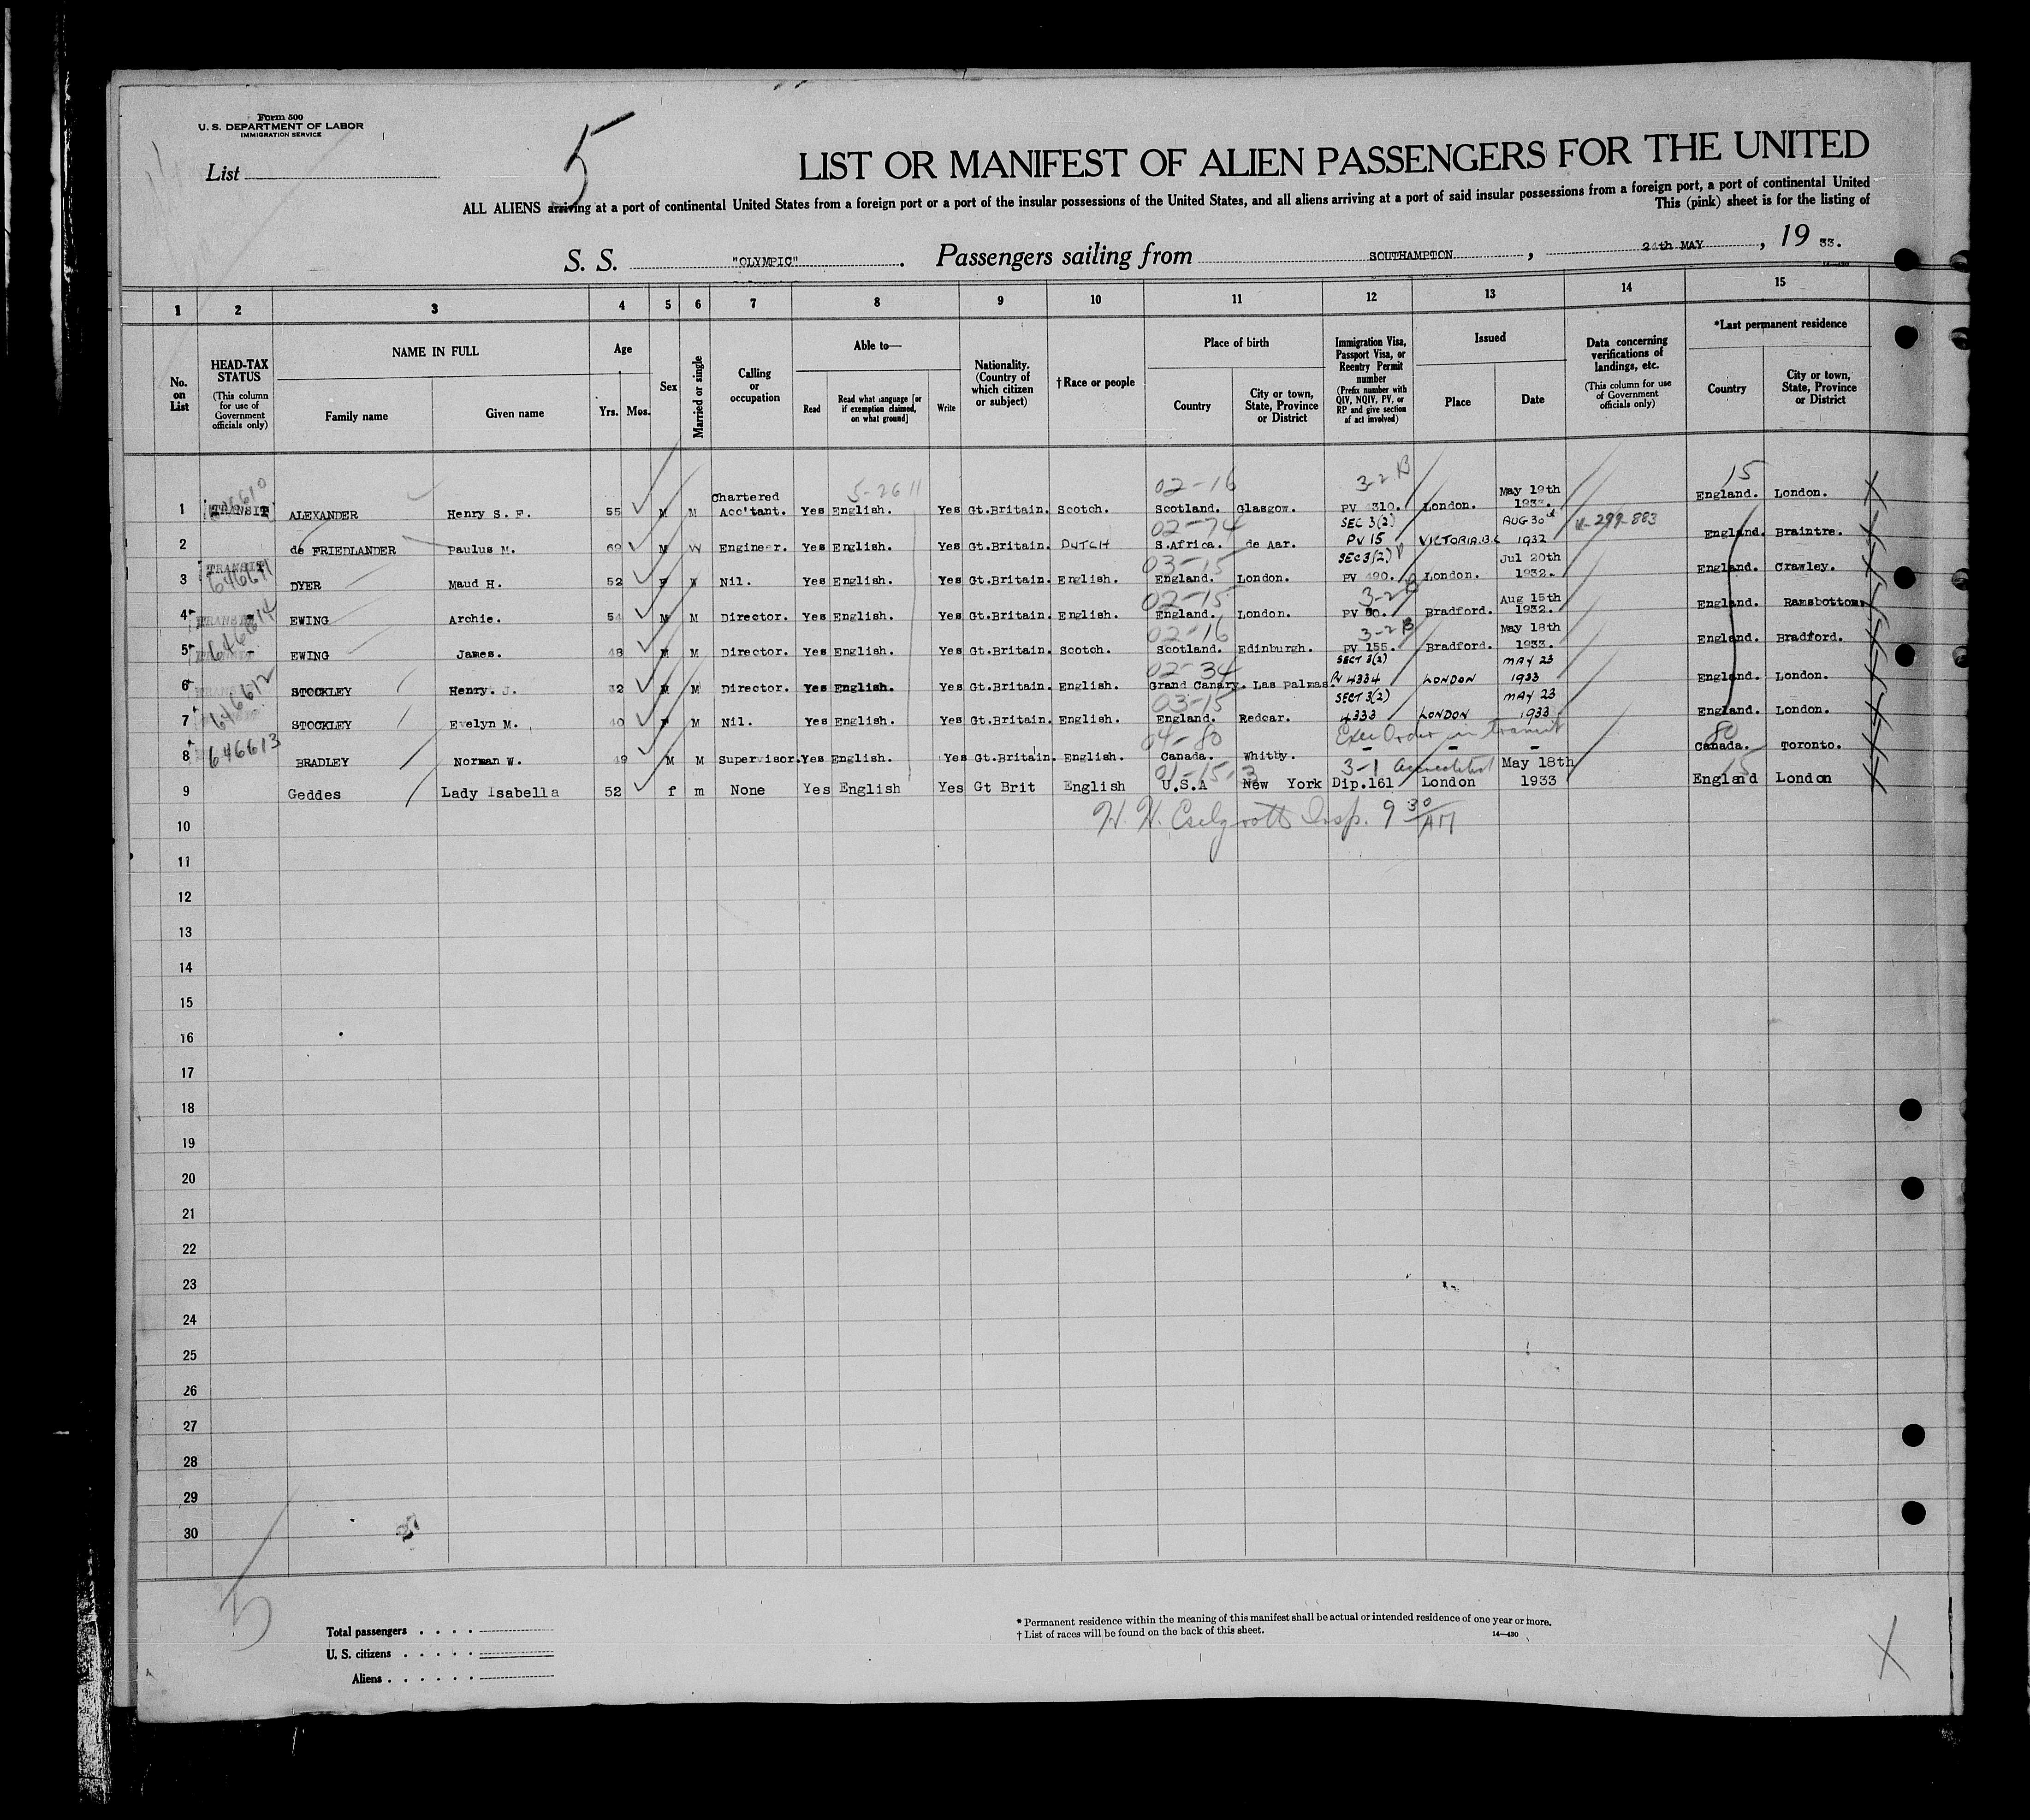 Form 500
U. S. DEPARTMENT OF LABOR
IMMIGRATION SERVICE
List
5
LIST OR MANIFEST OF ALIEN PASSENGERS FOR THE UNITED
ALL ALIENS arriving at a port of continental United States from a foreign port or a port of the insular possessions of the United States, and all aliens arriving at a port of said insular possessions from a foreign port, a port of continental United
This (pink) sheet is for the listing of
S. S. "OLYMPIC". Passengers sailing from SOUTHAMPTON, 24th MAY, 19 33.
1 2 3 4 5 6 7 8 9 10 11 12 13 14 15
No. on List
HEAD-TAX STATUS (This column for use of Government officials only)
NAME IN FULL
Family name
Given name
Age
Yrs. Mos.
Sex
Married or single
Calling or occupation
Able to—
Read
Read what language [or if exemption claimed, on what ground]
Write
Nationality. (Country of which citizen or subject)
†Race or people
Place of birth
Country
City or town, State, Province or District
Immigration Visa, Passport Visa, or Reentry Permit number (Prefix number with QIV, NQIV, PV, or RP and give section of act involved)
Issued
Place
Date
Data concerning verifications of landings, etc. (This column for use of Government officials only)
*Last permanent residence
Country
City or town, State, Province or District
5-2611 02-16 3-2 B 15
1 TRANSIT ALEXANDER Henry S. F. 55 M M Chartered Acc'tant. Yes English. Yes Gt.Britain. Scotch. Scotland. Glasgow. PV 310. London. May 19th 1933. England. London.
02-74 SEC 3(2)
2 de FRIEDLANDER Paulus M. M W Engineer. Yes English. Yes Gt.Britain. DUTCH S.Africa. de Aar. PV 15 VICTORIA.B.C AUG 30 1932 299-883 England. Braintre.
03-15 SEC 3(2)
3 TRANSIT 646611 DYER Maud H. 52 F W Nil. Yes English. Yes Gt.Britain. English. England. London. PV 490. London. Jul 20th 1932. England. Crawley.
02-15 3-2 B
4 TRANSIT EWING Archie. 54 M M Director. Yes English. Yes Gt.Britain. English. England. London. PV 50. Bradford. Aug 15th 1932. England. Ramsbottom.
02-16 3-2 B
5 646614 EWING James. 48 M M Director. Yes English. Yes Gt.Britain. Scotch. Scotland. Edinburgh. PV 155. Bradford. May 18th 1933. England. Bradford.
02-34 SECT 3(2)
6 STOCKLEY Henry. J. M M Director. Yes English. Yes Gt.Britain. English. Grand Canary. Las Palmas. PV 4334 LONDON MAY 23 1933 England. London.
03-15 SECT 3(2)
7 646612 STOCKLEY Evelyn M. 40 F M Nil. Yes English. Yes Gt.Britain. English. England. Redcar. 4333 LONDON MAY 23 1933 England. London.
04-80 Exec Order in transit 80
8 646613 BRADLEY Norman W. 49 M M Supervisor. Yes English. Yes Gt.Britain. English. Canada. Whitby. - - - Canada. Toronto.
01-15-3 3-1 Accredited 15
9 Geddes Lady Isabella 52 f m None Yes English Yes Gt Brit English U.S.A New York Dip.161 London May 18th 1933 England London
10 H. H. Insp. 9 30 AM
11
12
13
14
15
16
17
18
19
20
21
22
23
24
25
26
27
28
29
30
5
Total passengers
U. S. citizens
Aliens
* Permanent residence within the meaning of this manifest shall be actual or intended residence of one year or more.
† List of races will be found on the back of this sheet.
14—430
X